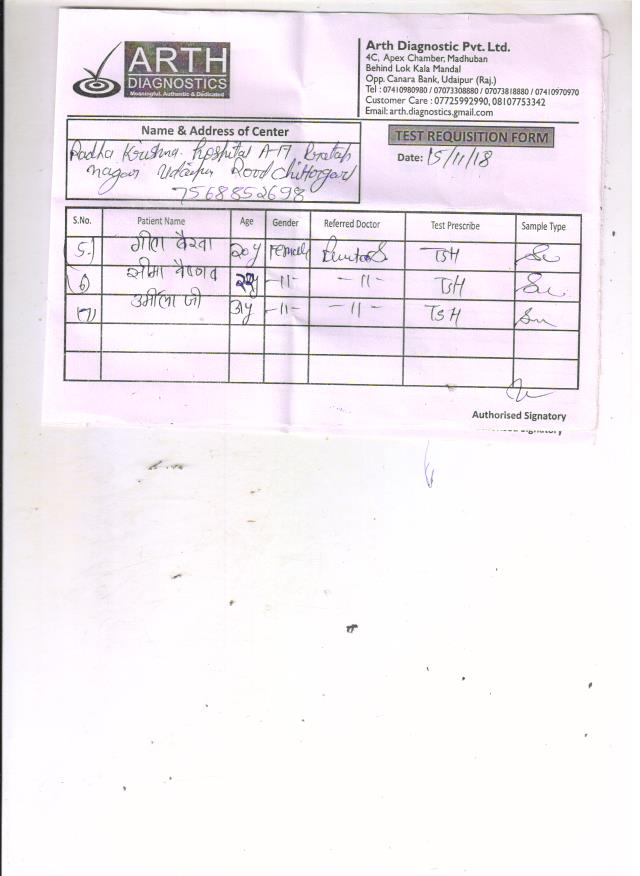 ARTH
DIAGNOSTICS
Meaningful, Authentic & Dedicated
Arth Diagnostic Pvt. Ltd.
4C, Apex Chamber, Madhuban
Behind Lok Kala Mandal
Opp. Canara Bank, Udaipur (Raj.)
Tel : 07410980980 / 07073308880 / 07073818880 / 07410970970
Customer Care : 07725992990, 08107753342
Email: arth.diagnostics.gmail.com
Name & Address of Center
Radha Krishna hospital A-17, Pratap
nagar Udaipur Road Chittorgarh
7568852698
TEST REQUISITION FORM
Date: 15/11/18
S.No. Patient Name Age Gender Referred Doctor Test Prescribe Sample Type
5.) गीता बैरवा 20y Female TSH
(6) सीमा वैष्णव 22y -11- -11- TSH
(7) उर्मीला जी 31y -11- -11- TSH
Authorised Signatory